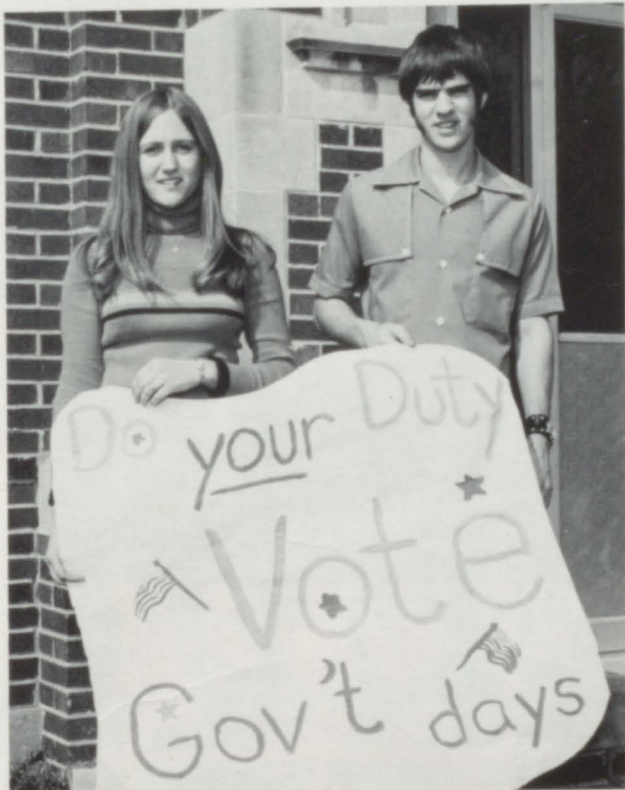 Do your Duty
Vote
Gov't days